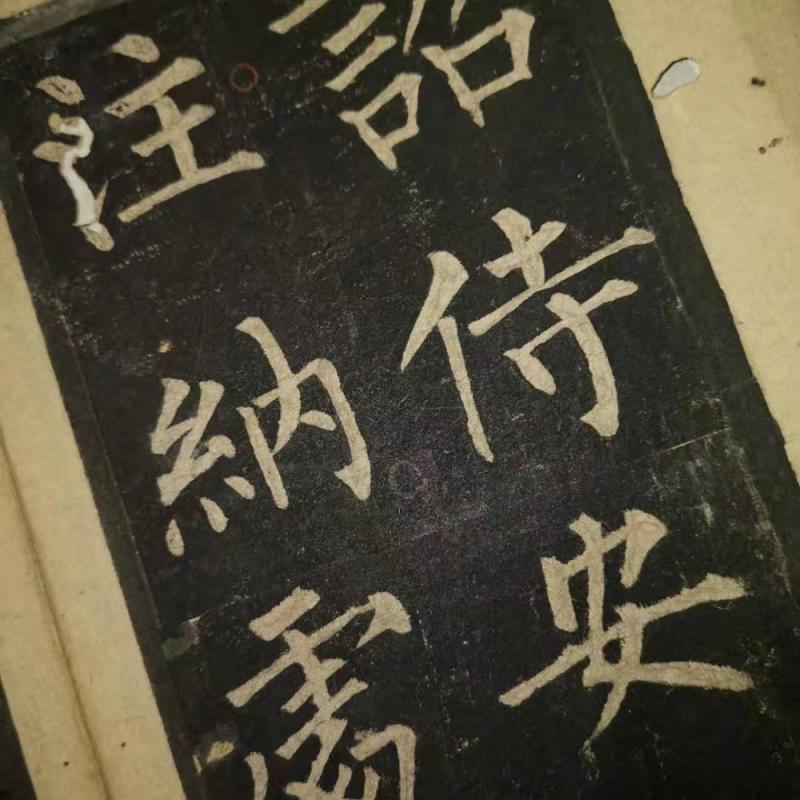 詔侍安
注納